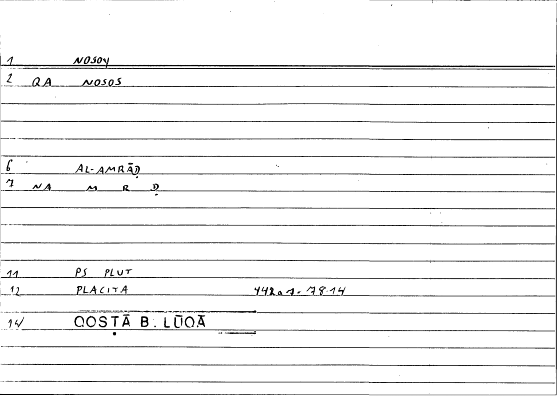 1 NOSOY
2 QA NOSOS
6 AL-AMRĀḌ
7 NA M R Ḍ
11 PS PLUT
12 PLACITA 442a1. 78.14
14 QOSṬĀ B. LŪQĀ